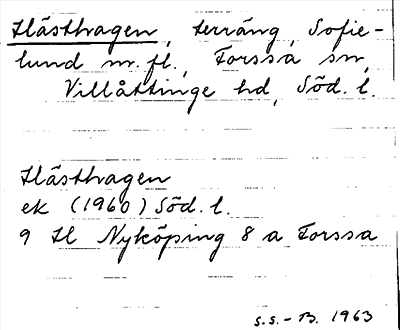 Hästhagen, terräng, Sofie-
lund m. fl., Forssa sn,
Villåttinge hd, Söd. l.
Hästhagen
ek (1960) Söd. l.
9 H Nyköping 8 a Forssa
S.S. - B. 1963